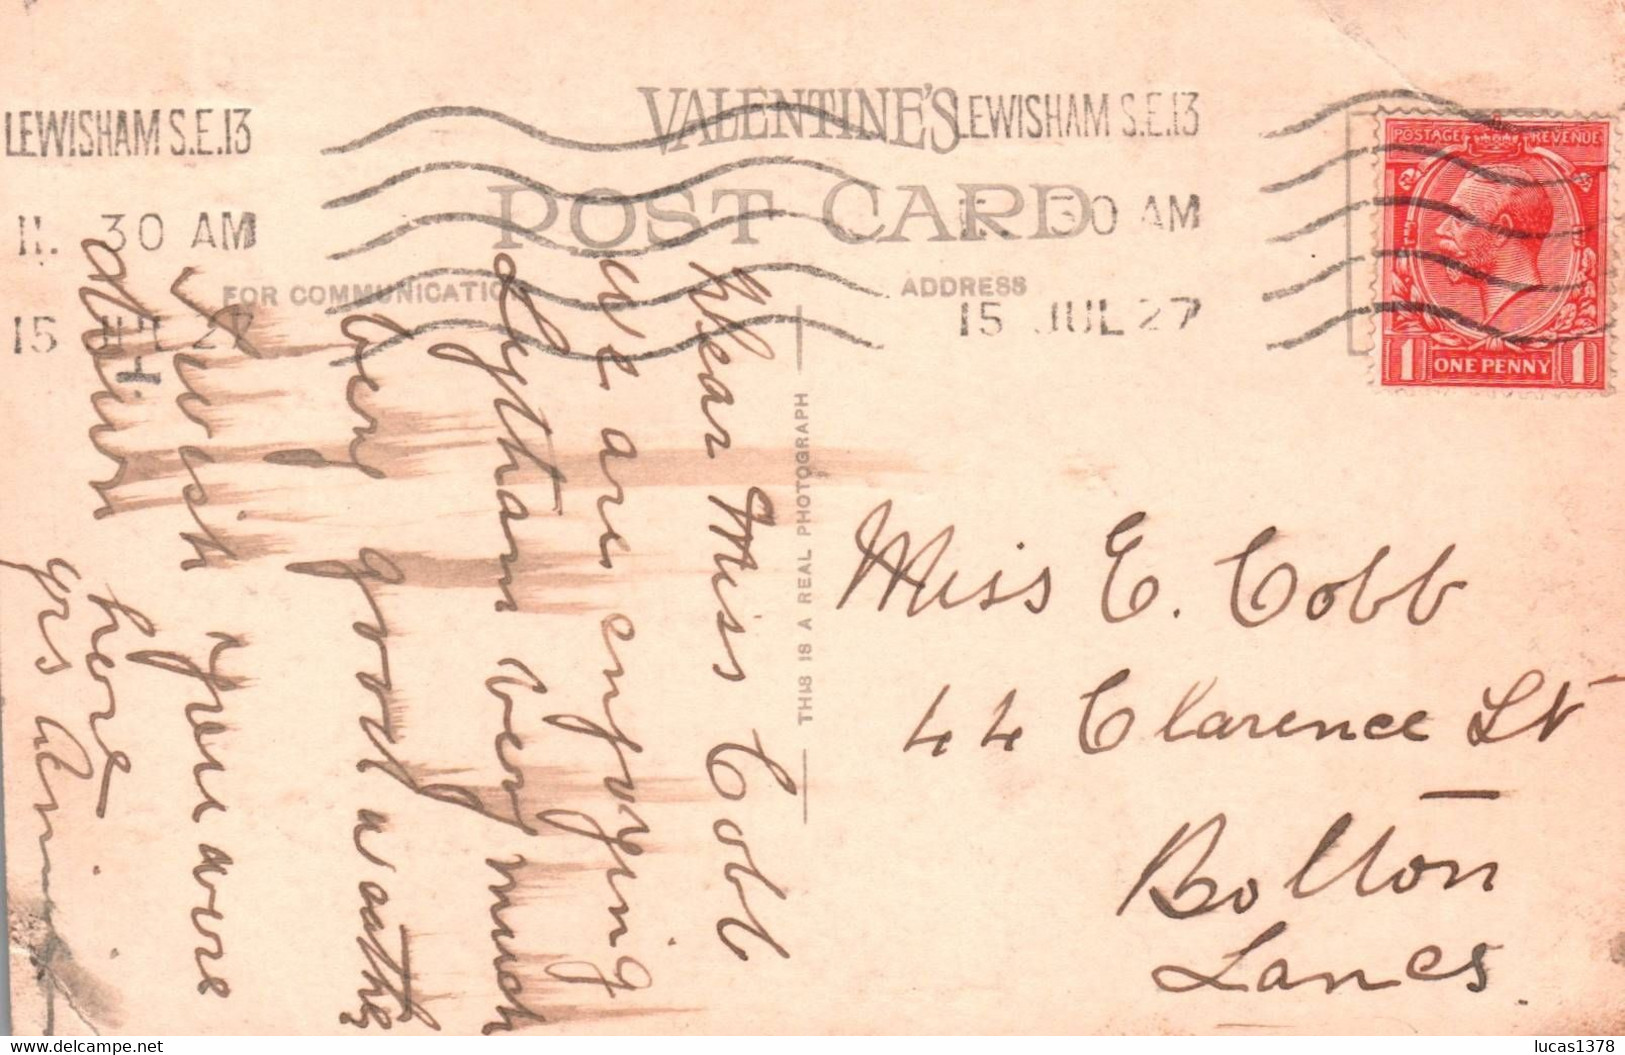 LEWISHAM S.E.13
11. 30 AM
15 JUL 27
VALENTINE'S
POST CARD
FOR COMMUNICATION
ADDRESS
LEWISHAM S.E.13
30 AM
15 JUL 27
POSTAGE REVENUE
1 ONE PENNY 1
THIS IS A REAL PHOTOGRAPH
Dear Miss Cobb
We are enjoying
Lytham very much
very good weather
I wish you were
here
yrs
Miss E. Cobb
44 Clarence St
Bolton
Lancs.
delcampe.net
lucas1378